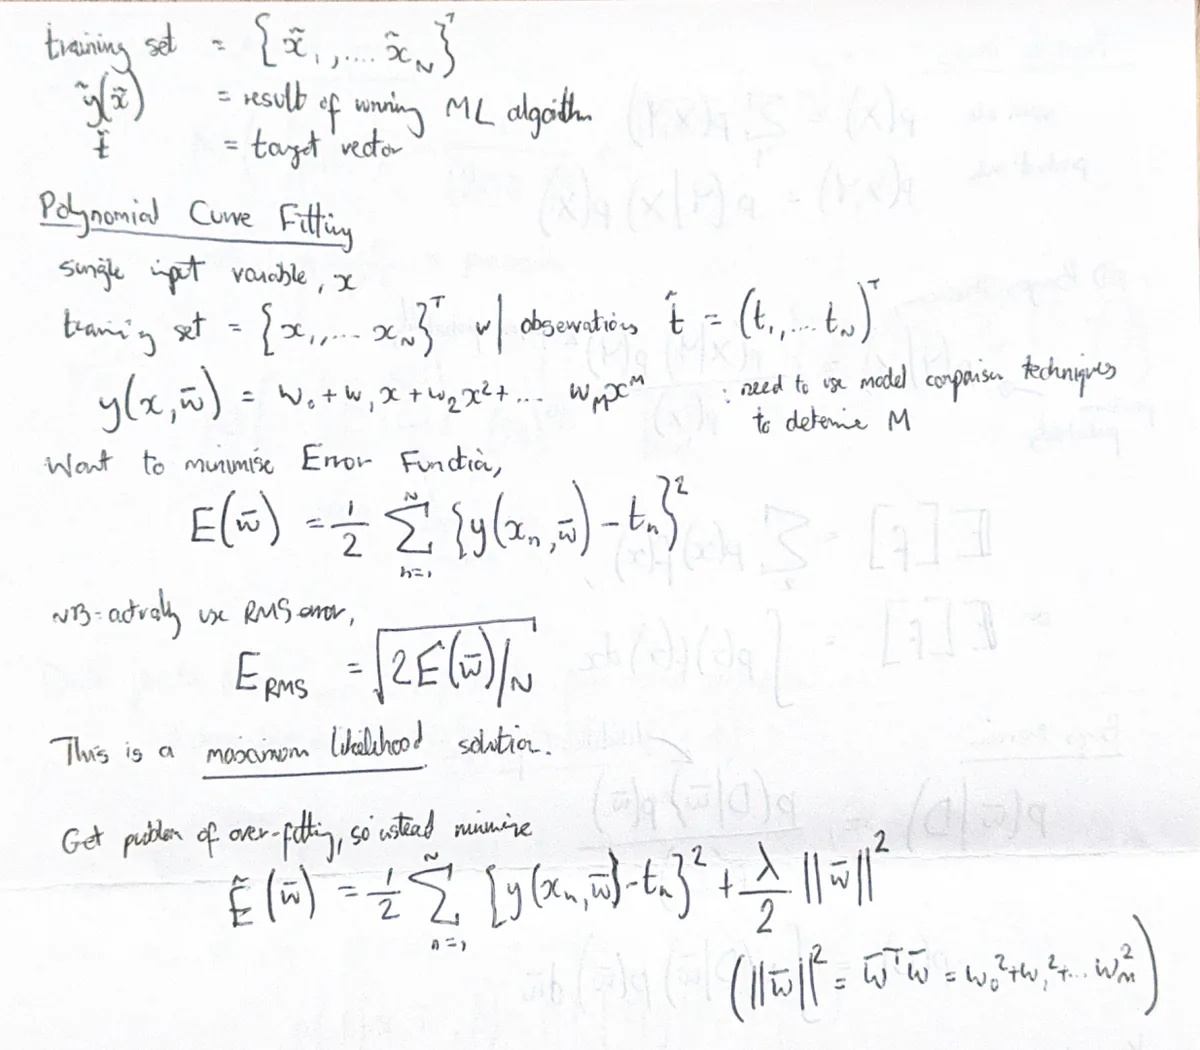 training set = {x̃₁,.... x̃_N}ᵀ
ỹ(x̃) = result of running ML algorithm
t̃ = target vector
Polynomial Curve Fitting
single input variable, x
training set = {x₁,... x_N}ᵀ w/ observations t̃ = (t₁,... t_N)ᵀ
y(x,w̄) = w₀ + w₁x + w₂x² + ... w_Mx^M : need to use model comparison techniques
to determine M
Want to minimise Error Function,
E(w̄) = 1/2 Σ_{n=1}^{N} {y(x_n,w̄) - t_n}²
NB - actually use RMS error,
E_RMS = √(2E(w̄)/N)
This is a maximum likelihood solution.
Get problem of over-fitting, so instead minimize
Ẽ(w̄) = 1/2 Σ_{n=1}^{N} {y(x_n,w̄) - t_n}² + λ/2 ||w̄||²
(||w̄||² = w̄ᵀw̄ = w₀² + w₁² + ... w_M²)